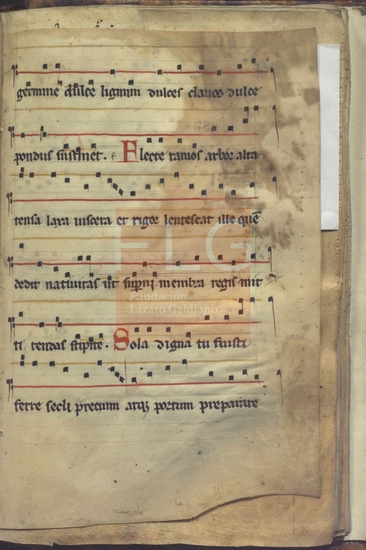 germine dulce lignum dulces clavos dulce
pondus sustinet. Flecte ramos arbor alta
tensa laxa viscera et rigor lentescat ille quē
dedit nativitas ut supni membra regis mit
ti tendas stipite. Sola digna tu fuisti
ferre secli precium atq; portum preparare
FLG
Fundación
Lázaro Galdiano